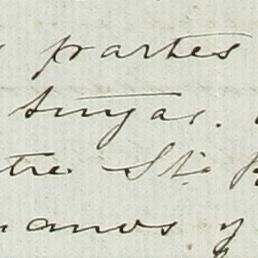 partes
suyas.
tre Sta
manos y